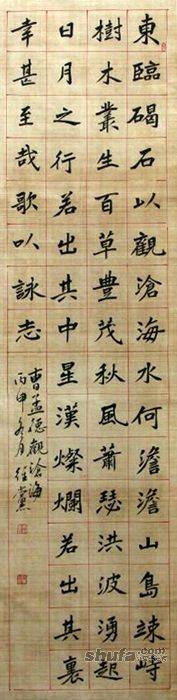 東臨碣石以觀滄海水何澹澹山島竦峙
樹木叢生百草豐茂秋風蕭瑟洪波湧起
日月之行若出其中星漢燦爛若出其裏
幸甚至哉歌以詠志
曹孟德觀滄海
丙申冬月
shufa.com